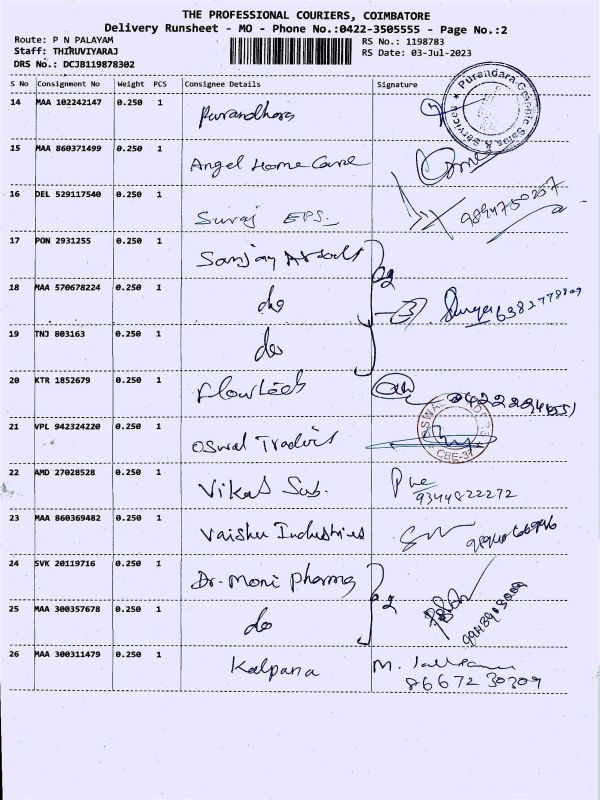 THE PROFESSIONAL COURIERS, COIMBATORE
Delivery Runsheet - MO - Phone No.:0422-3505555 - Page No.:2
Route: P N PALAYAM
Staff: THIRUVIYARAJ
DRS No.: DCJB119878302
RS No.: 1198783
RS Date: 03-Jul-2023
S No Consignment No Weight PCS Consignee Details Signature
14 MAA 102242147 0.250 1 Purandhara
Purandara Graphic Sales & Services
15 MAA 860371499 0.250 1 Angel Home Care
16 DEL 529117540 0.250 1 Suraj EPS 9894750257
17 PON 2931255 0.250 1 Sanjay
18 MAA 570678224 0.250 1 do 6382778809
19 TNJ 803163 0.250 1 do
20 KTR 1852679 0.250 1
21 VPL 942324220 0.250 1 Oswal Traders CBE-37
22 AMD 27028528 0.250 1 Vikas Sub. 9344822272
23 MAA 860369482 0.250 1 Vaishu Industries
24 SVK 20119716 0.250 1 Dr. Moni Pharma
25 MAA 300357678 0.250 1 do
26 MAA 300311479 0.250 1 Kalpana M.
8667230309